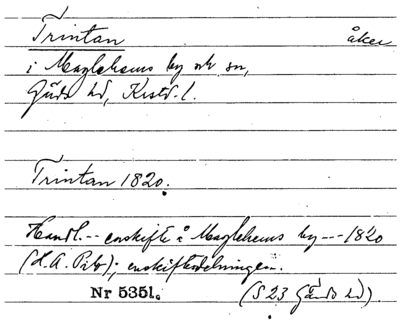 Trintan åker
i Maglehems by och sn,
Gärds hd, Kristst. l.
Trintan 1820.
Handl. -- enskifte å Maglehems by --- 1820
(L.A. Pitr); enskiftesdelningen.
Nr 5351. (S 23 Gärds hd).